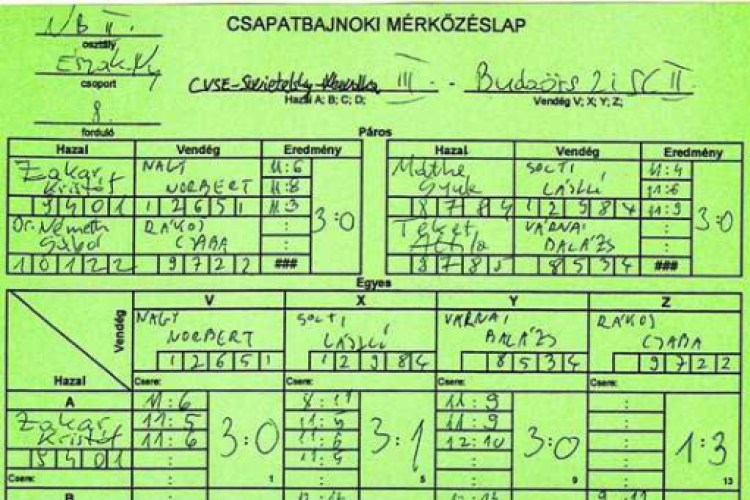 CSAPATBAJNOKI MÉRKŐZÉSLAP
NB II.
osztály
Észak-Ny
csoport
8.
forduló
CVSE- III. - Budaörs 2i SC II
Hazai A; B; C; D; Vendég V; X; Y; Z;
Páros
Hazai Vendég Eredmény Hazai Vendég Eredmény
Zakar NAGY 11:6 Máthé SOLTI 11:4
Kristóf NORBERT 11:8 Gyula LÁSZLÓ 11:6
9401 12651 11:3 8784 12984 11:9
3:0 3:0
Dr. Németh RÁKOSI : Teket VÁRNAI :
Gábor CSABA : Attila BALÁZS :
10122 9722 ### 8785 8534 ###
Egyes
V X Y Z
Vendég
NAGY SOLTI VÁRNAI RÁKOSI
NORBERT LÁSZLÓ BALÁZS CSABA
12651 12984 8534 9722
Hazai
Csere: Csere: Csere: Csere:
A 11:6 8:11 11:9 :
Zakar 11:5 11:5 11:9 :
Kristóf 11:6 11:6 12:10 :
9401 : : :
3:0 3:1 3:0 1:3
Csere: 1 5 9 13
B